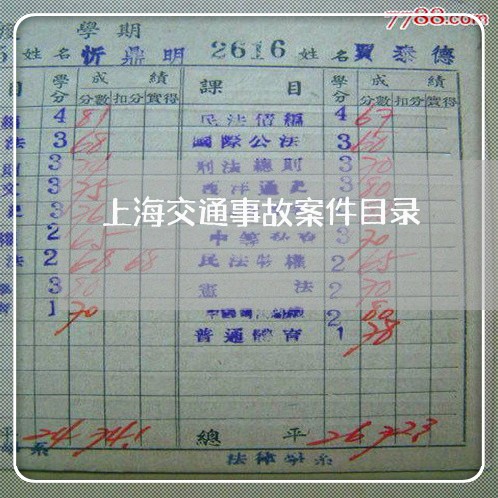 7788.com
學期
5 姓名 忻鼎明 2616 姓名 賈泰德
目 學分 成績 分數 扣分 實得 課目 學分 成績 分數 扣分 實得
4 81 民法債編 4 67
法 3 68 國際公法 3 60
3 刑法總則 3 70
3 75 西洋通史 3 80
上海交通事故案件目录
2 65 3 70
法 2 68 68 民法物權 2 65
3 80 憲法 2 70
育 1 70 2 80
普通體育 1 78
平 24 74.1 總平 26 72.3
系 法律學系